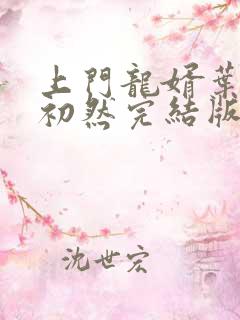 上門龍婿葉
初然完結版
沈世宏